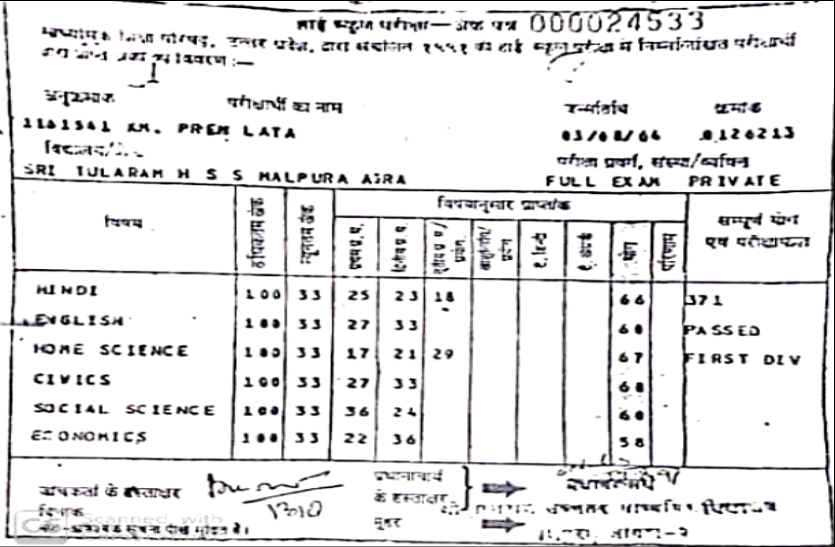 हाई स्कूल परीक्षा— अंक पत्र 000024533
माध्यमिक शिक्षा परिषद्, उत्तर प्रदेश, द्वारा संचालित १९९१ की हाई स्कूल परीक्षा में निम्नलिखित परीक्षार्थी
द्वारा प्राप्त अंकों का विवरण :—
अनुक्रमांक परीक्षार्थी का नाम जन्मतिथि क्रमांक
1181541 KM. PREM LATA 03/08/66 0126213
विद्यालय/केन्द्र परीक्षा प्रवर्ग, संस्था/व्यक्तिगत
SRI TULARAM H S S MALPURA AGRA FULL EXAM PRIVATE
विषय अधिकतम अंक न्यूनतम अंक विषयानुसार प्राप्तांक सम्पूर्ण योग
प्रथम प्र.प. द्वितीय प्र.प. तृतीय प्र.प./ योग परिणाम एवं परीक्षाफल
HINDI 100 33 25 23 18 66 371
ENGLISH 100 33 27 33 60 PASSED
HOME SCIENCE 100 33 17 21 29 67 FIRST DIV
CIVICS 100 33 27 33 60
SOCIAL SCIENCE 100 33 36 24 60
ECONOMICS 100 33 22 36 58
जांचकर्ता के हस्ताक्षर प्रधानाचार्य
के हस्ताक्षर
दिनांक मुहर
CS Scanned with